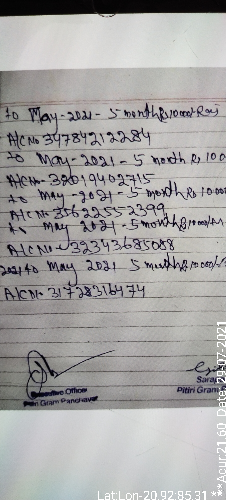 to May-2021 - 5 month Rs 10000/- Rs
A/C No 34784212284
to May-2021 - 5 month Rs 100
A/C No- 32019402715
to May-2021 - 5 month Rs 10000
A/C No 35622552399
to May 2021 - 5 month Rs 10000/-
A/C No - 32343685088
2021 to May 2021 5 month Rs 10000/-
A/C No 31728316474
Executive Officer
Pitiri Gram Panchayat
Sarap
Pitiri Gram
Lat Lon-20.92:85.31
**Acur 21.60 Date: 29-07-2021